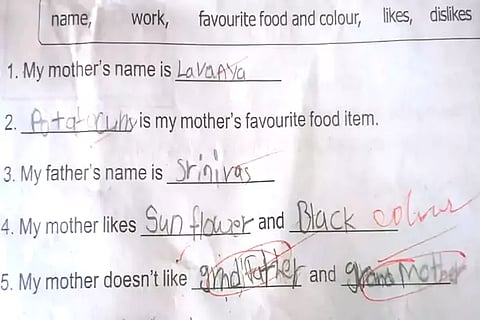 name, work, favourite food and colour, likes, dislikes
1. My mother's name is Lavanya
2. Potatocurry is my mother's favourite food item.
3. My father's name is Srinivas
4. My mother likes Sun flower and Black colour
5. My mother doesn't like grand father and grand Mother